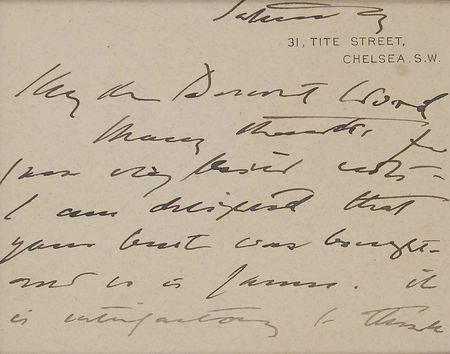 Saturday
31, TITE STREET,
CHELSEA. S.W.
My dear Derwent Wood
Many thanks for
your very kind note -
I am delighted that
your bust was bought -
and so is James. it
is satisfactory to think